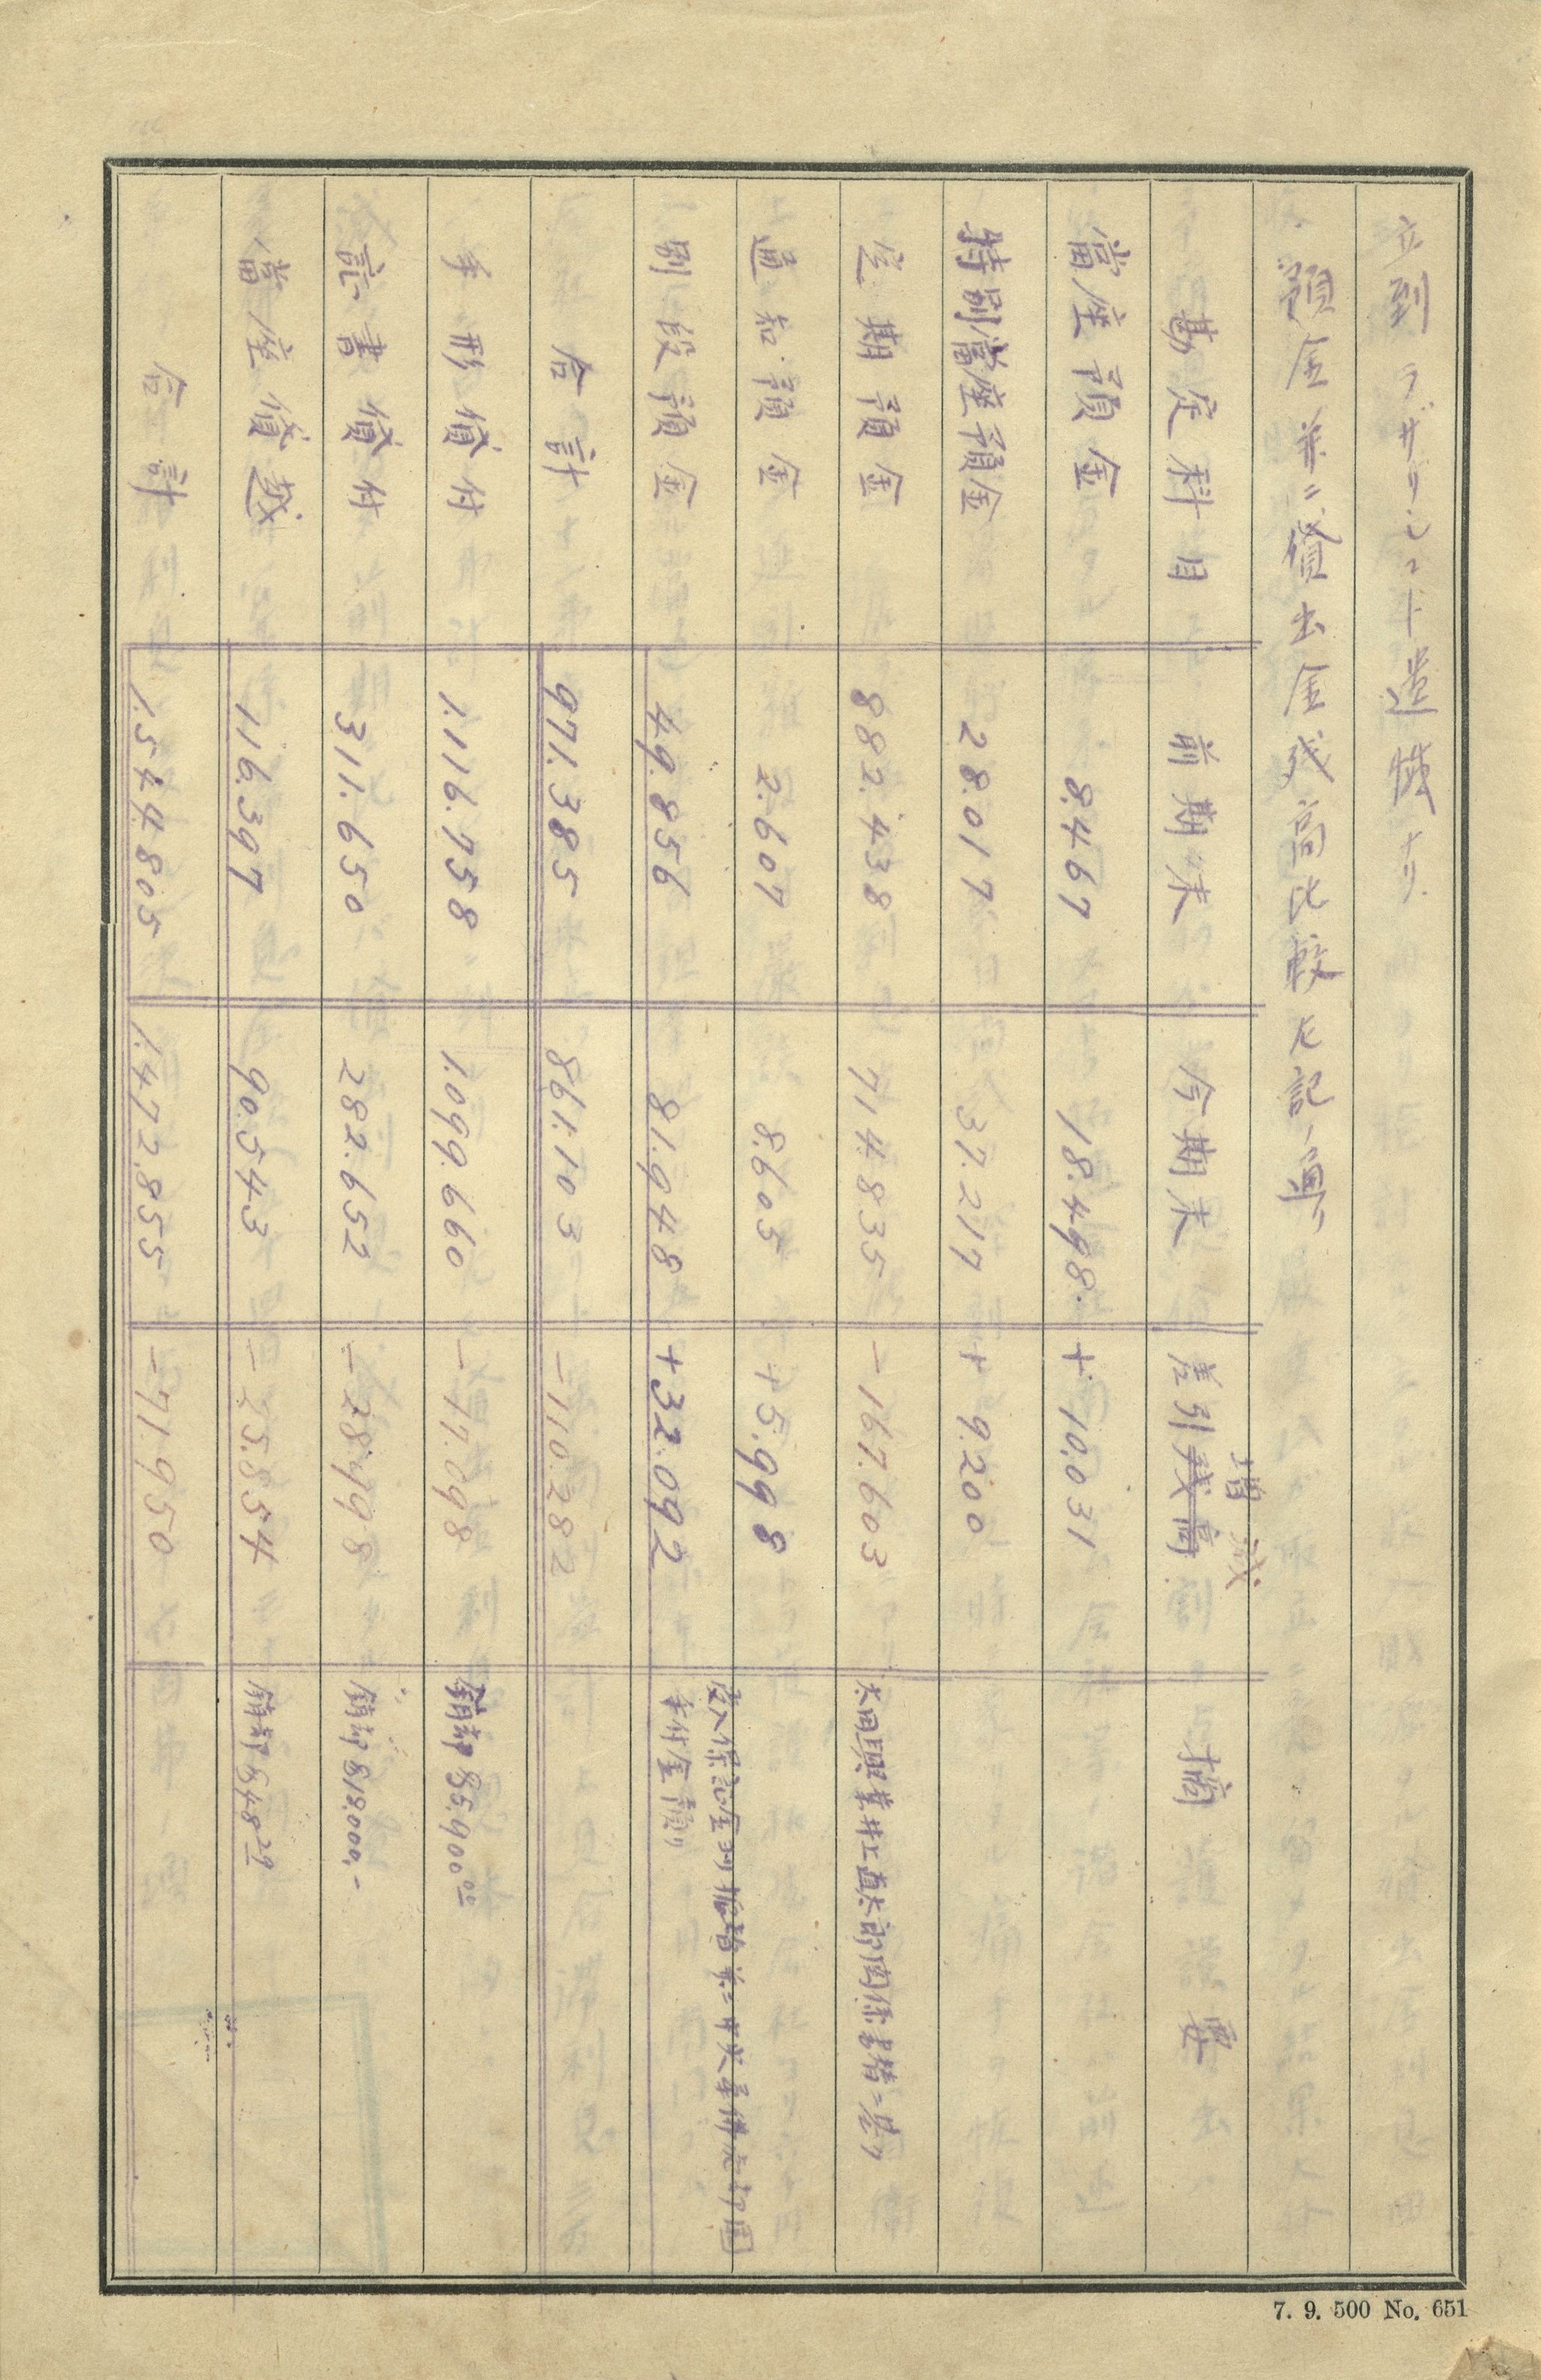 立到ラザリシコト遺憾ナリ
預金並ニ貸出金残高比較左記ノ通リ
勘定科目 前期末 今期末 差引残高 増減 摘要
當座預金 8.467 18.498. + 10.031
特別當座預金 28.017 37.217 + 9.200
定期預金 882.438 714.835 - 167.603 太田興業井上直太郎関係書替ニ差リ
通知預金 2.607 8.605 + 5.998
別段預金 49.856 81.948 + 32.092
合計 971.385 861.103 - 110.282
手形貸付 1.116.758 1.099.660 - 17.098 銷却 85.900.00
証書貸付 311.650 282.652 - 28.998 銷却 818.000.-
當座貸越 116.397 90.543 - 25.554 銷却 648.29
合計 1.544.805 1.472.855 - 71.950
7. 9. 500 No. 651